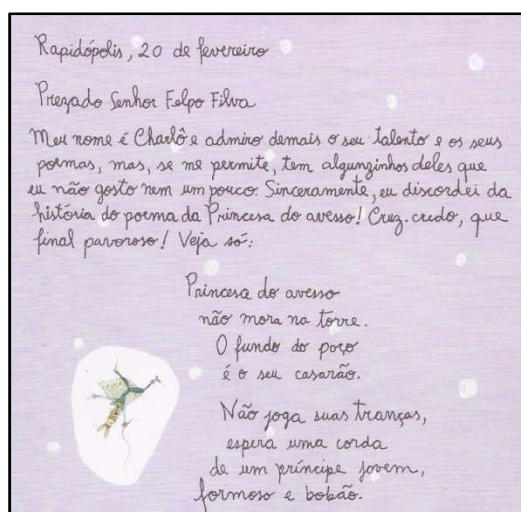 Rapidópolis, 20 de fevereiro
Prezado Senhor Felpo Filva
Meu nome é Charlô e admiro demais o seu talento e os seus
poemas, mas, se me permite, tem algunzinhos deles que
eu não gosto nem um pouco. Sinceramente, eu discordei da
história do poema da Princesa do avesso! Cruz-credo, que
final pavoroso! Veja só:
Princesa do avesso
não mora na torre.
O fundo do poço
é o seu casarão.
Não joga suas tranças,
espera uma corda
de um príncipe jovem,
formoso e bobão.